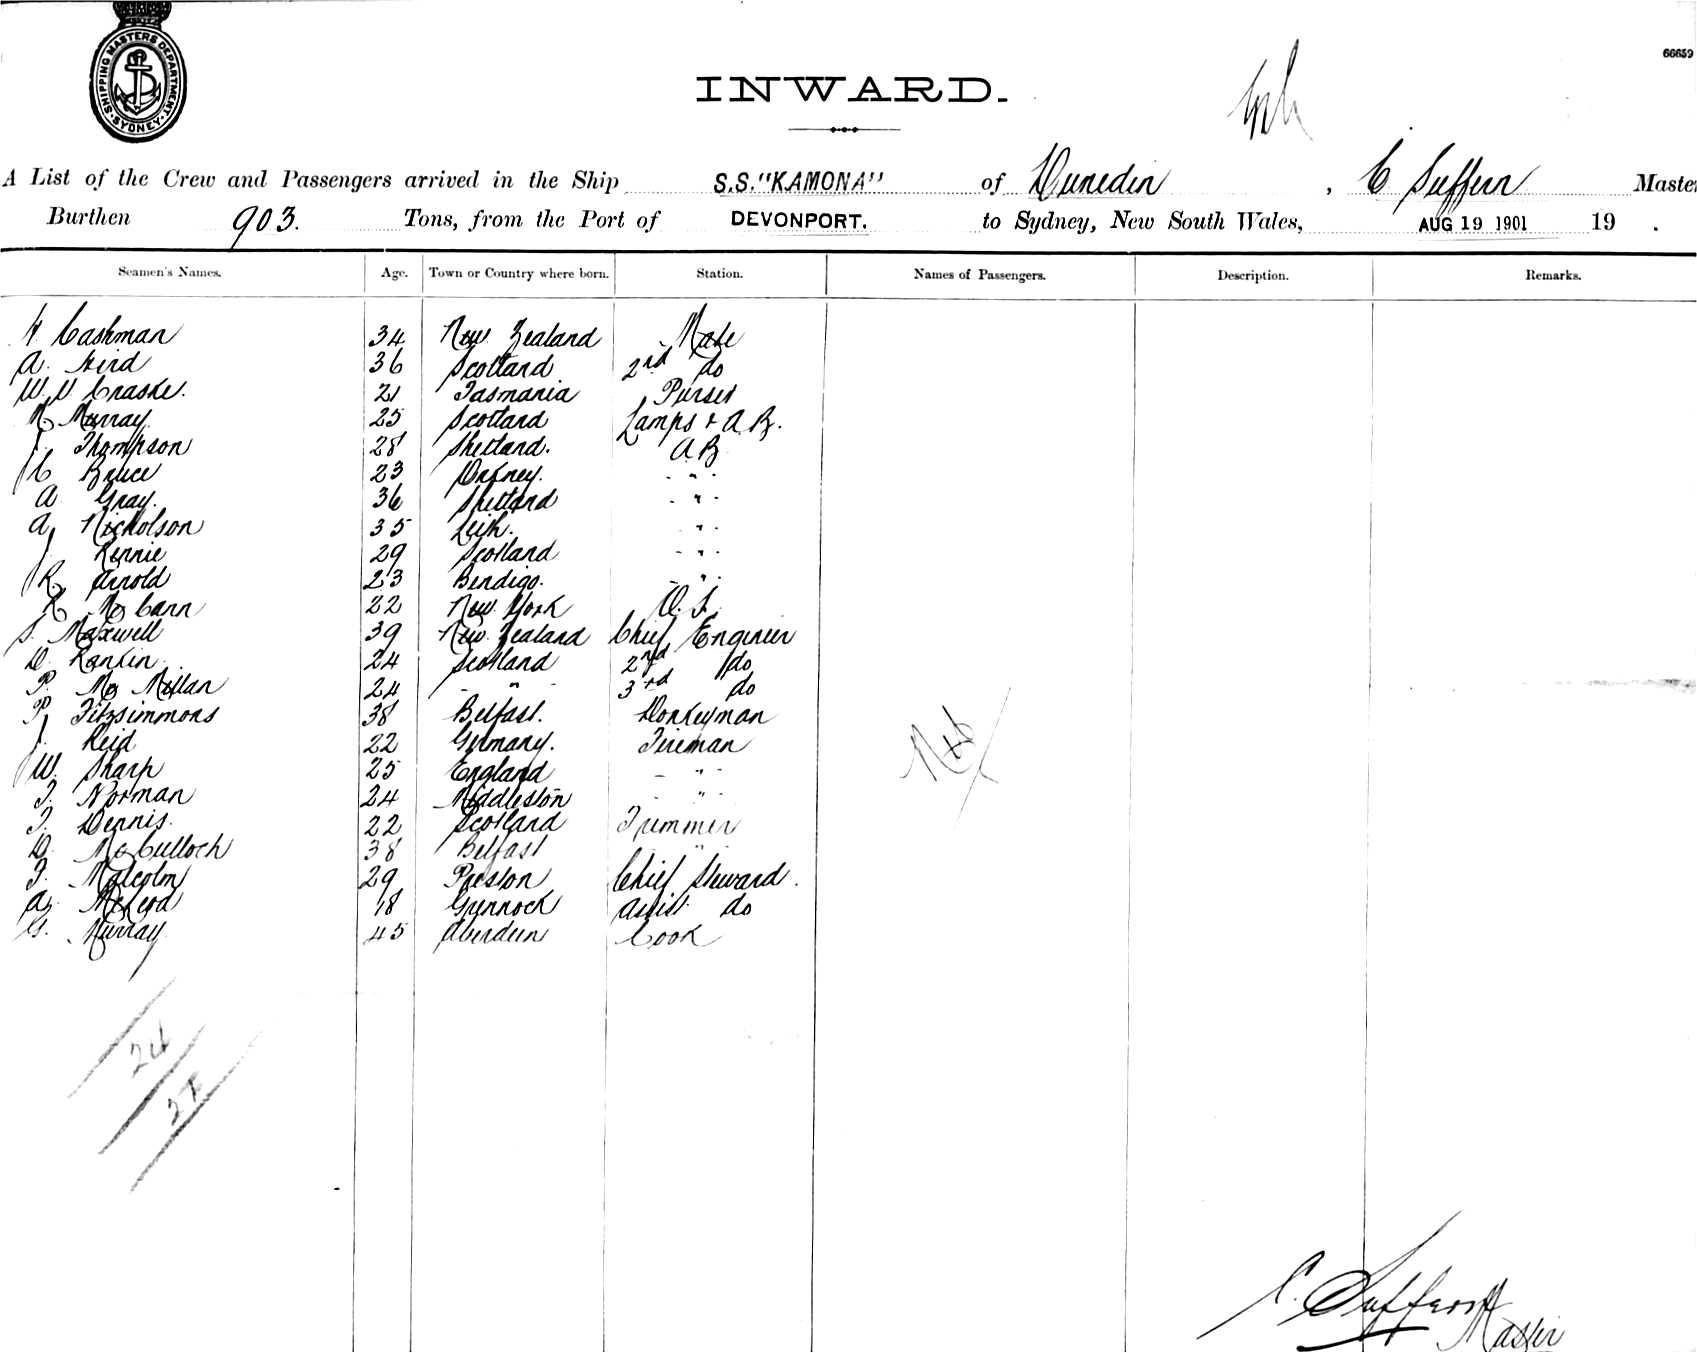 SHIPPING MASTERS DEPARTMENT. SYDNEY.
66659
INWARD.
A List of the Crew and Passengers arrived in the Ship S.S. "KAMONA" of Dunedin, C Suffern Master
Burthen 903. Tons, from the Port of DEVONPORT. to Sydney, New South Wales, AUG 19 1901 19 .
Seamen's Names. Age. Town or Country where born. Station. Names of Passengers. Description. Remarks.
Cashman 34 New Zealand Mate
A. Aird 36 Scotland 2nd do
W. Craske. 21 Tasmania Purser
Murray 25 Scotland Lamps & A.B.
J. Thompson 28 Shetland. A B
C Bruce 23 Orkney. " 
A Gray. 36 Shetland "
A Nicholson 35 Leith. "
J. Rennie 29 Scotland "
R. Arnold 23 Bendigo. "
Mc Cann 22 New York O.S.
S. Maxwell 39 New Zealand Chief Engineer
D. Rankin 24 Scotland 2nd do
P. Mc Millan 24 " 3rd do
P. Fitzsimmons 38 Belfast. Donkeyman
J. Reid 22 Germany. Fireman
W. Sharp 25 England "
T. Norman 24 Middleston "
T. Dennis. 22 Scotland Trimmer
D. Mc Culloch 38 Belfast "
F. Malcolm 29 Preston Chief Steward.
A. McLeod 18 Greenock Assist. do
G. Murray 45 Aberdeen Cook
24
C. Suffern
Master